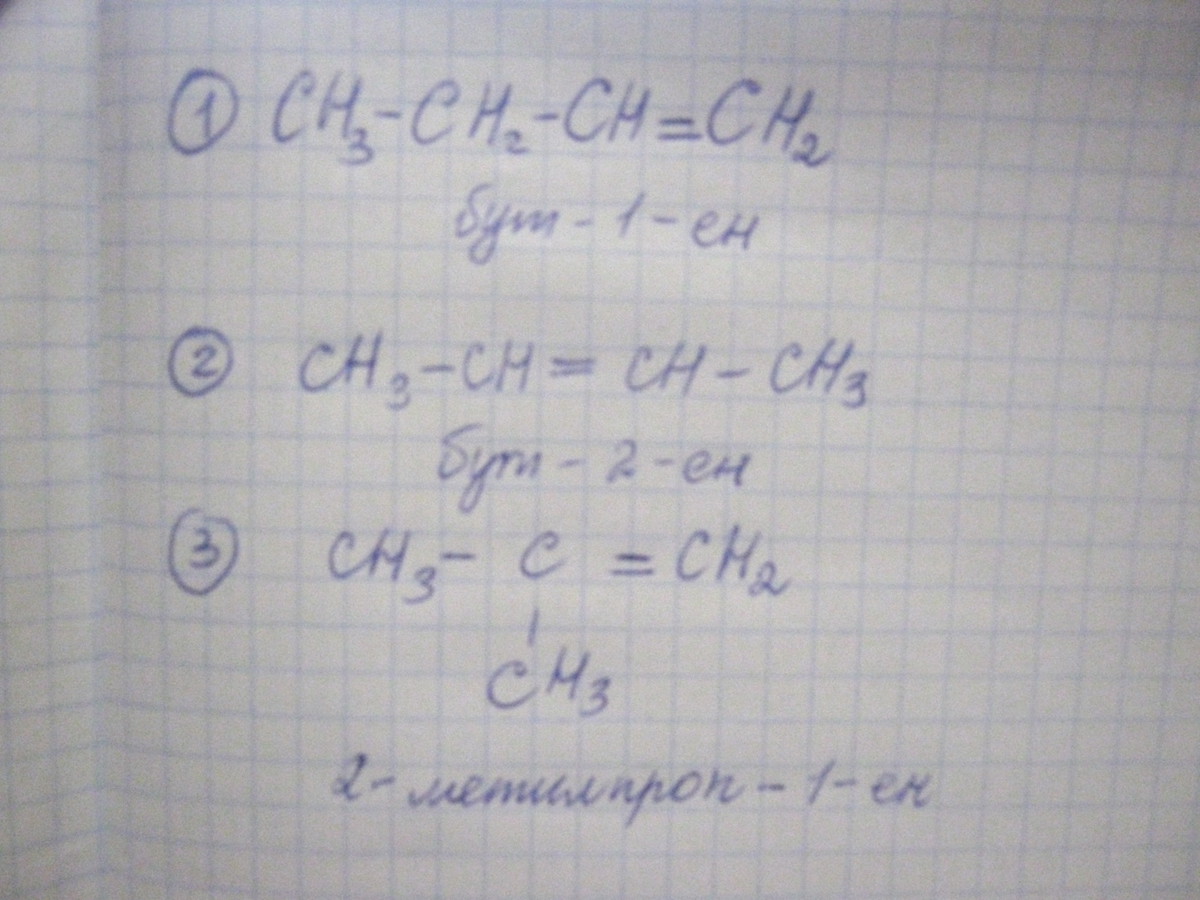 ① CH₃-CH₂-CH=CH₂
бут-1-ен
② CH₃-CH=CH-CH₃
бут-2-ен
③ CH₃-C=CH₂
|
CH₃
2-метилпроп-1-ен